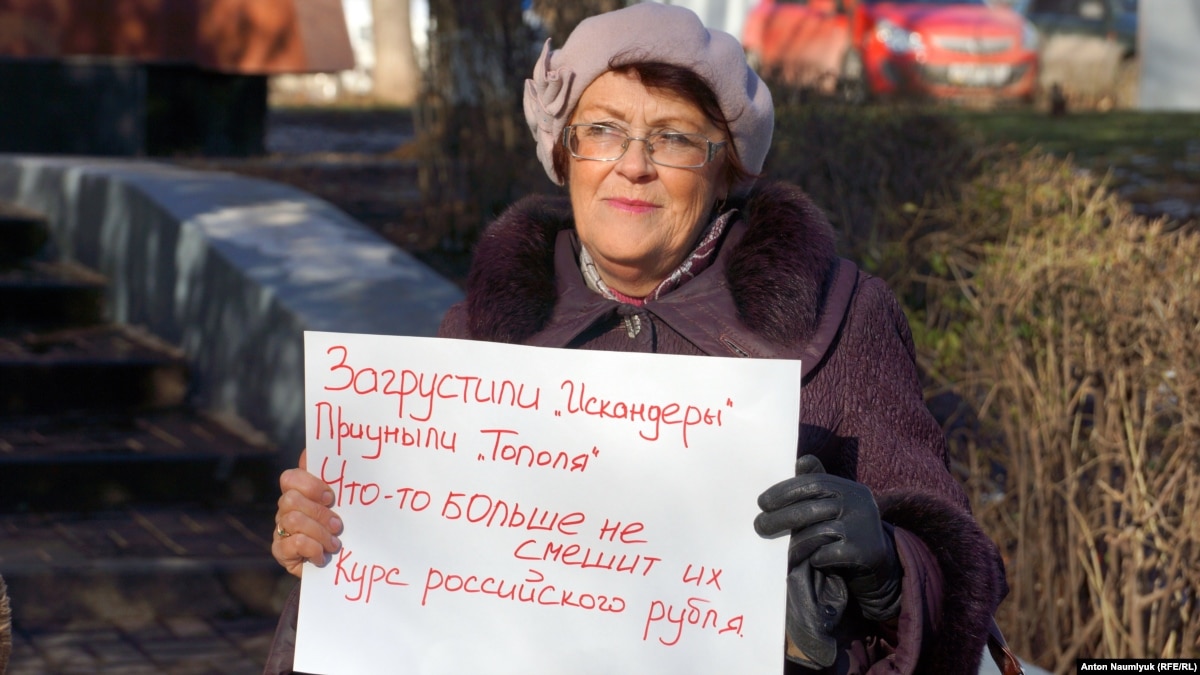 Загрустили „Искандеры“
Приуныли „Тополя“
Что-то больше не
смешит их
Курс российского рубля.
Anton Naumlyuk (RFE/RL)